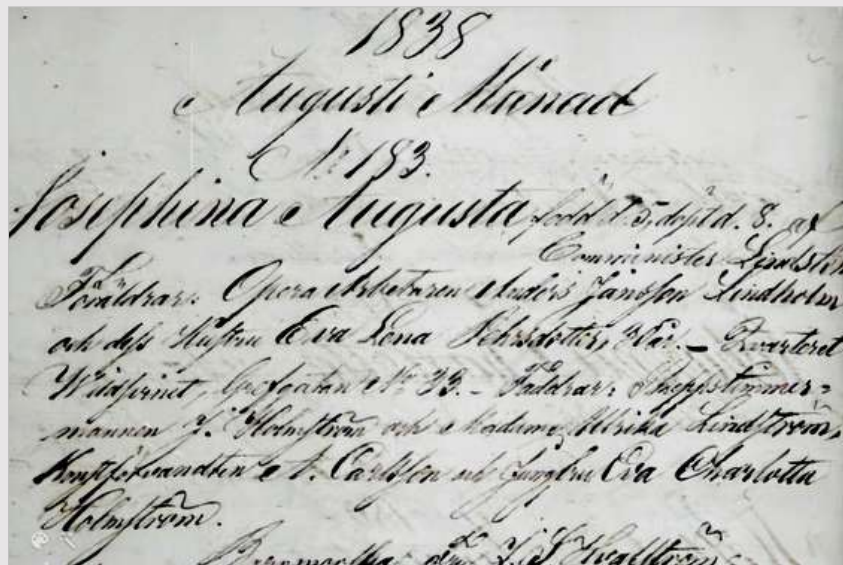 1838
Augusti Månad
N: 183.
Josephina Augusta född d. 5, döpt d. 8. af
Comminister Lindst
Föräldrar: Opera Arbetaren Anders Jansson Lindholm
och dess Hustru Eva Lena Pehrsdotter, År. – Qvarteret
Grefgatan N: 33. – Faddrar: Skeppstimmer=
mannen J. Holmström och Madame Ulrika Lindström,
A. Carlsson och Jungfru Eva Charlotta
Holmström.